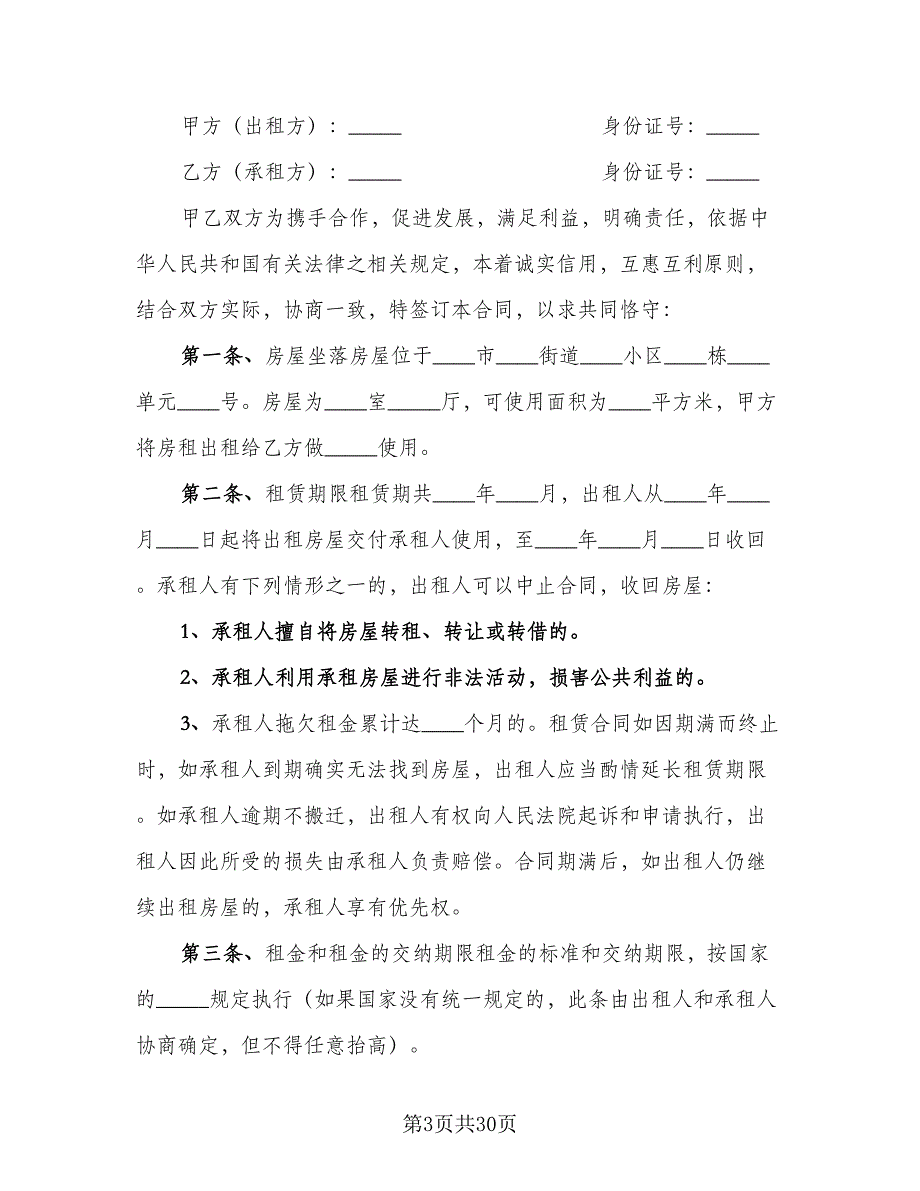 甲方（出租方）：_____ 身份证号：_____
乙方（承租方）：_____ 身份证号：_____
甲乙双方为携手合作，促进发展，满足利益，明确责任，依据中
华人民共和国有关法律之相关规定，本着诚实信用，互惠互利原则，
结合双方实际，协商一致，特签订本合同，以求共同恪守：
第一条、房屋坐落房屋位于____市____街道____小区____栋____
单元____号。房屋为____室_____厅，可使用面积为____平方米，甲方
将房租出租给乙方做_____使用。
第二条、租赁期限租赁期共____年____月，出租人从____年____
月____日起将出租房屋交付承租人使用，至____年____月____日收回
。承租人有下列情形之一的，出租人可以中止合同，收回房屋：
1、承租人擅自将房屋转租、转让或转借的。
2、承租人利用承租房屋进行非法活动，损害公共利益的。
3、承租人拖欠租金累计达____个月的。租赁合同如因期满而终止
时，如承租人到期确实无法找到房屋，出租人应当酌情延长租赁期限
。如承租人逾期不搬迁，出租人有权向人民法院起诉和申请执行，出
租人因此所受的损失由承租人负责赔偿。合同期满后，如出租人仍继
续出租房屋的，承租人享有优先权。
第三条、租金和租金的交纳期限租金的标准和交纳期限，按国家
的_____规定执行（如果国家没有统一规定的，此条由出租人和承租人
协商确定，但不得任意抬高）。
第3页共30页